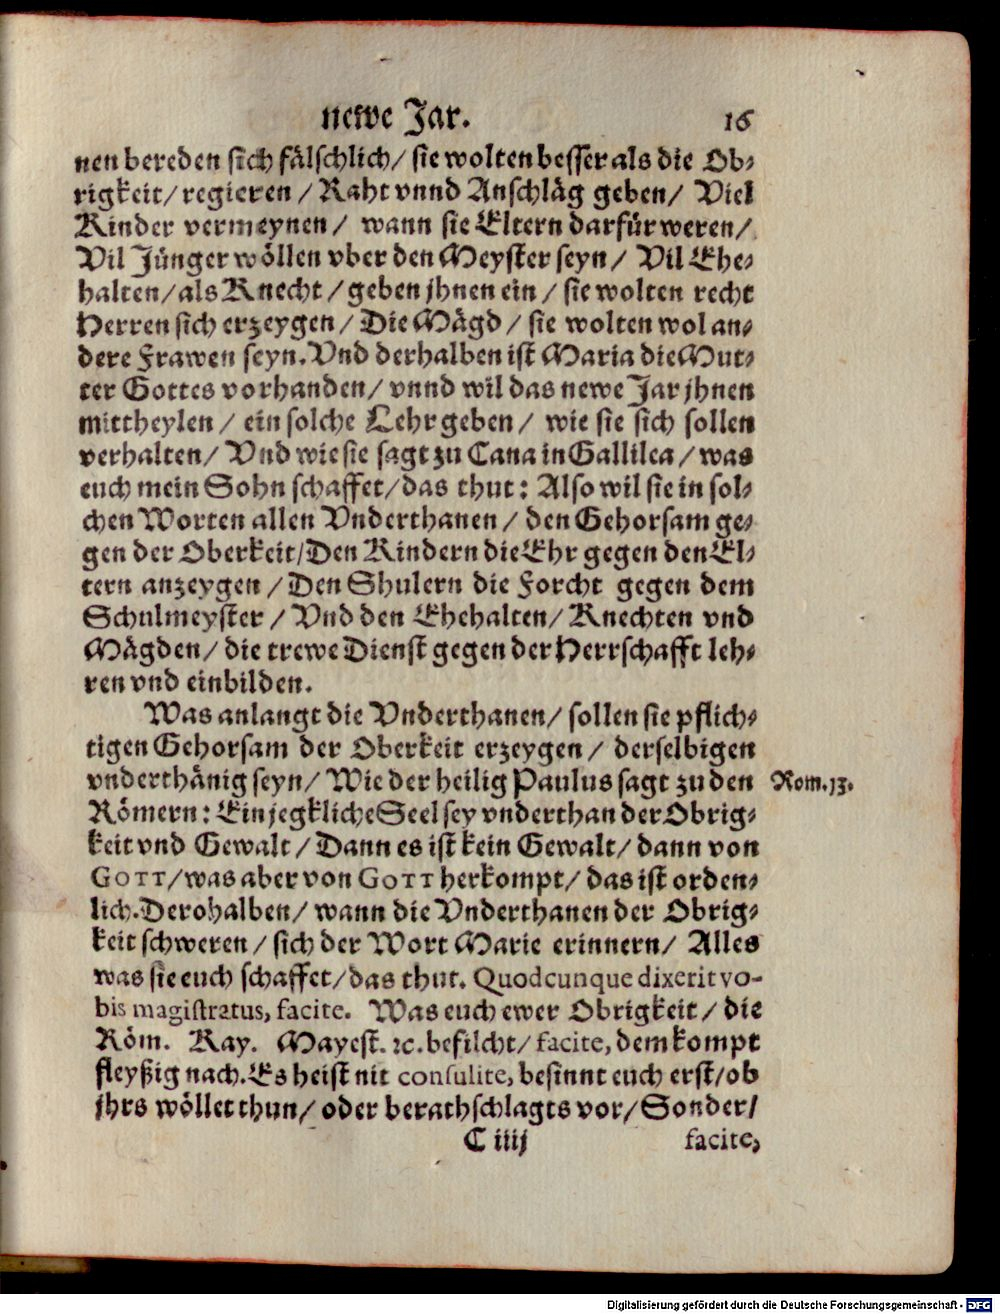 newe Jar. 16
nen bereden sich fälschlich/ sie wolten besser als die Ob⸗
rigkeit/ regieren / Raht vnnd Anschläg geben/ Viel
Kinder vermeynen / wann sie Eltern darfür weren/
Vil Jünger wöllen vber den Meyster seyn / Vil Ehe⸗
halten/ als Knecht / geben jhnen ein / sie wolten recht
Herren sich erzeygen / Die Mägd / sie wolten wol an⸗
dere Frawen seyn. Vnd derhalben ist Maria die Mut⸗
ter Gottes vorhanden/ vnnd wil das newe Jar jhnen
mittheylen / ein solche Lehr geben / wie sie sich sollen
verhalten/ Vnd wie sie sagt zu Cana in Gallilea / was
euch mein Sohn schaffet/ das thut: Also wil sie in sol⸗
chen Worten allen Vnderthanen / den Gehorsam ge⸗
gen der Oberkeit/ Den Kindern die Ehr gegen den El⸗
tern anzeygen / Den Shulern die Forcht gegen dem
Schulmeyster / Vnd den Ehehalten/ Knechten vnd
Mägden/ die trewe Dienst gegen der Herrschafft leh⸗
ren vnd einbilden.
Was anlangt die Vnderthanen/ sollen sie pflich⸗
tigen Gehorsam der Oberkeit erzeygen / derselbigen
vnderthänig seyn/ Wie der heilig Paulus sagt zu den
Rom. 13.
Römern: Ein jegkliche Seel sey vnderthan der Obrig⸗
keit vnd Gewalt/ Dann es ist kein Gewalt/ dann von
GOTT/ was aber von GOTT herkompt/ das ist orden⸗
lich. Derohalben/ wann die Vnderthanen der Obrig⸗
keit schweren / sich der Wort Marie erinnern/ Alles
was sie euch schaffet/ das thut. Quodcunque dixerit vo-
bis magistratus, facite. Was euch ewer Obrigkeit / die
Röm. Kay. Mayest. ꝛc. befilcht/ facite, dem kompt
fleyßig nach. Es heist nit consulite, besinnt euch erst/ ob
jhrs wöllet thun/ oder berathschlagts vor/ Sonder/
C iiij facite,
Digitalisierung gefördert durch die Deutsche Forschungsgemeinschaft - DFG